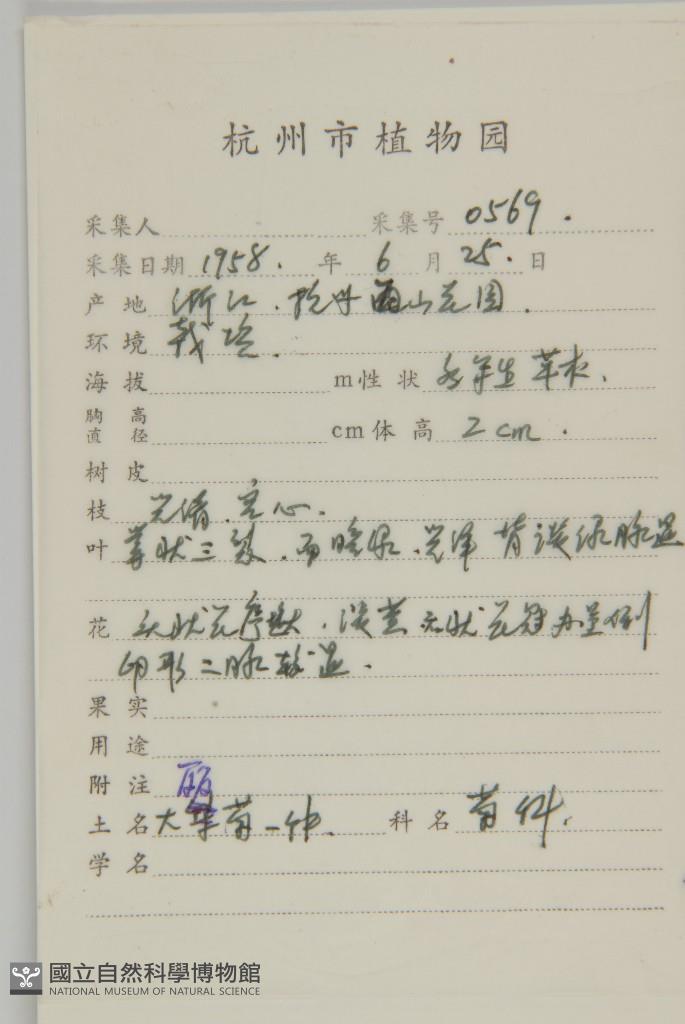 杭州市植物园
采集人 采集号 0569.
采集日期 1958. 年 6 月 25. 日
产地 浙江.杭州 西山花园.
环境 栽培.
海拔 m性状 多年生草本.
胸高直径 cm体高 2cm.
树皮
枝 光滑.空心.
叶 掌状三裂.面暗绿.光泽 背淡绿脉显
花 头状花序大.淡黄 舌状花冠 呈倒
卵形二脉较显.
果实
用途
附注 丽
土名 大 菊一种. 科名 菊科.
学名
國立自然科學博物館
NATIONAL MUSEUM OF NATURAL SCIENCE